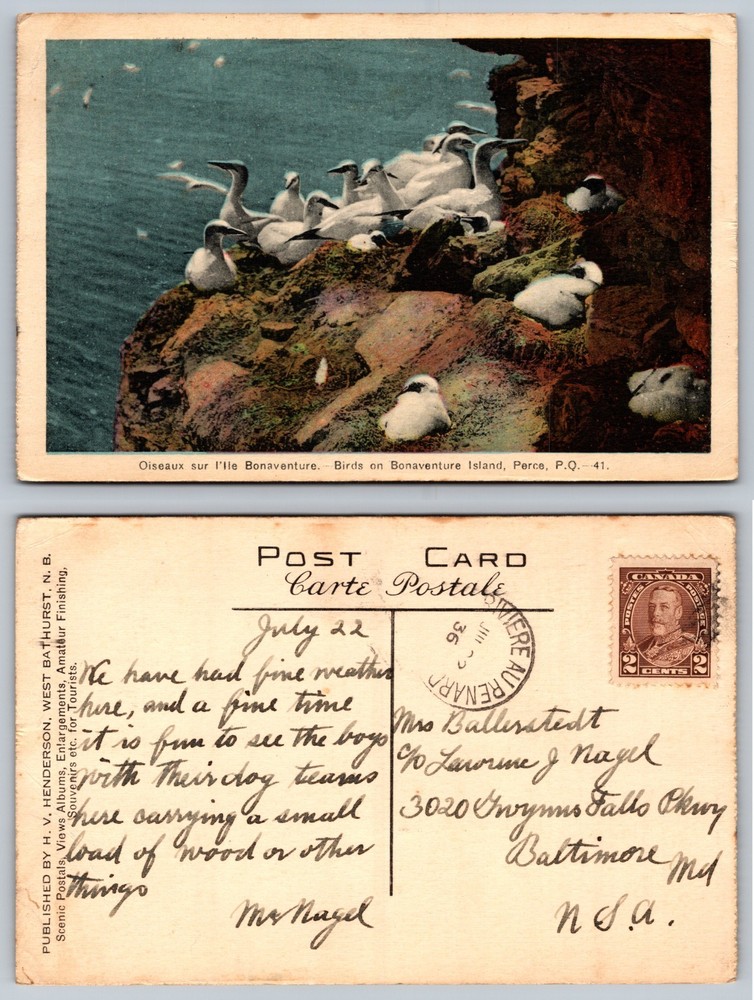 Oiseaux sur l'Ile Bonaventure. - Birds on Bonaventure Island, Perce, P.Q. - 41.
POST CARD
Carte Postale
PUBLISHED BY H. V. HENDERSON, WEST BATHURST, N. B.
Scenic Postals, Views Albums, Enlargements, Amateur Finishing,
Souvenirs etc. for Tourists.
July 22
We have had fine weather
here, and a fine time
it is fun to see the boys
with their dog teams
here carrying a small
load of wood or other
things
Mr Nagel
RIVIERE AU RENARD
36
CANADA
POSTES POSTAGE
2 CENTS 2
Mrs Ballerstedt
c/o Lawrence J Nagel
3020 Gwynns Falls Pkwy
Baltimore Md
U.S.A.